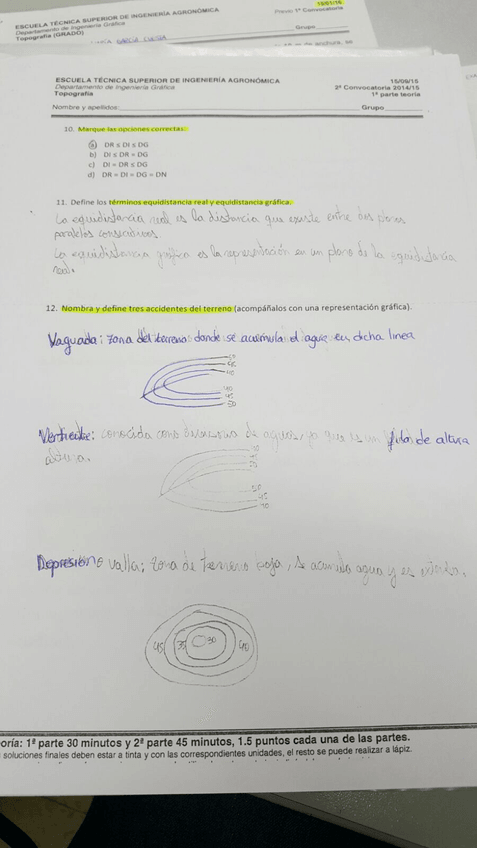 ESCUELA TÉCNICA SUPERIOR DE INGENIERÍA AGRONÓMICA
Departamento de Ingeniería Gráfica
Topografía (GRADO)
Previo 1ª Convocatoria
Grupo
ESCUELA TÉCNICA SUPERIOR DE INGENIERÍA AGRONÓMICA
15/09/15
Departamento de Ingeniería Gráfica
2ª Convocatoria 2014/15
Topografía
1ª parte teoría
Nombre y apellidos:
Grupo
10. Marque las opciones correctas:
a) DR ≤ DI ≤ DG
b) DI ≤ DR = DG
c) DI = DR ≤ DG
d) DR = DI = DG = DN
11. Define los términos equidistancia real y equidistancia gráfica.
La equidistancia real es la distancia que existe entre dos planos
paralelos consecutivos.
La equidistancia gráfica es la representación en un plano de la equidistancia
real.
12. Nombra y define tres accidentes del terreno (acompáñalos con una representación gráfica).
Vaguada: zona del terreno donde se acumula el agua en dicha linea
40
40
45
50
Vertiente: conocida como divisoria de aguas, ya que es un de altura
altura.
50
45
40
Depresión o valla: zona de terreno baja, se acumula agua y es
45 35 30 40
oría: 1ª parte 30 minutos y 2ª parte 45 minutos, 1.5 puntos cada una de las partes.
soluciones finales deben estar a tinta y con las correspondientes unidades, el resto se puede realizar a lápiz.